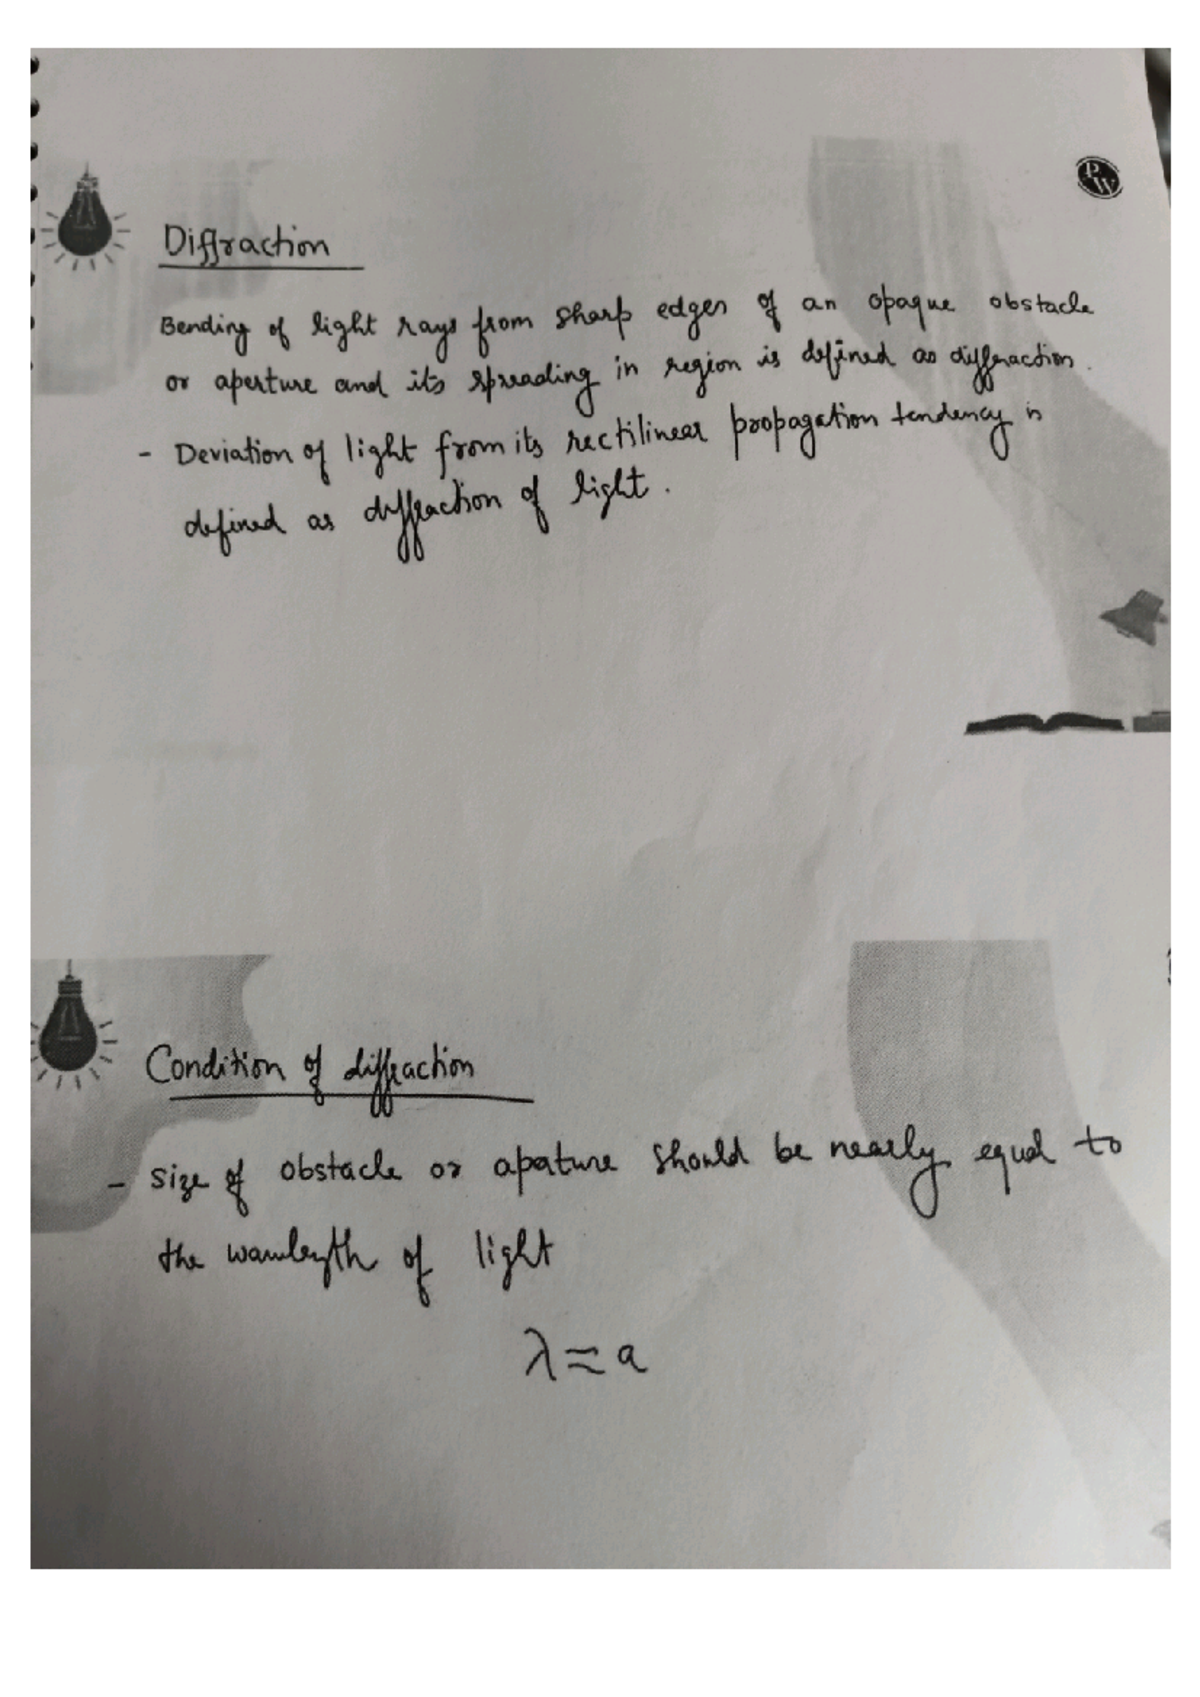 PW
Diffraction
Bending of light rays from sharp edges of an opaque obstacle
or aperture and its spreading in region is defined as diffraction.
- Deviation of light from its rectilinear propagation tendency is
defined as diffraction of light.
Condition of diffraction
- size of obstacle or apature should be nearly equal to
the wavelength of light
λ ≈ a